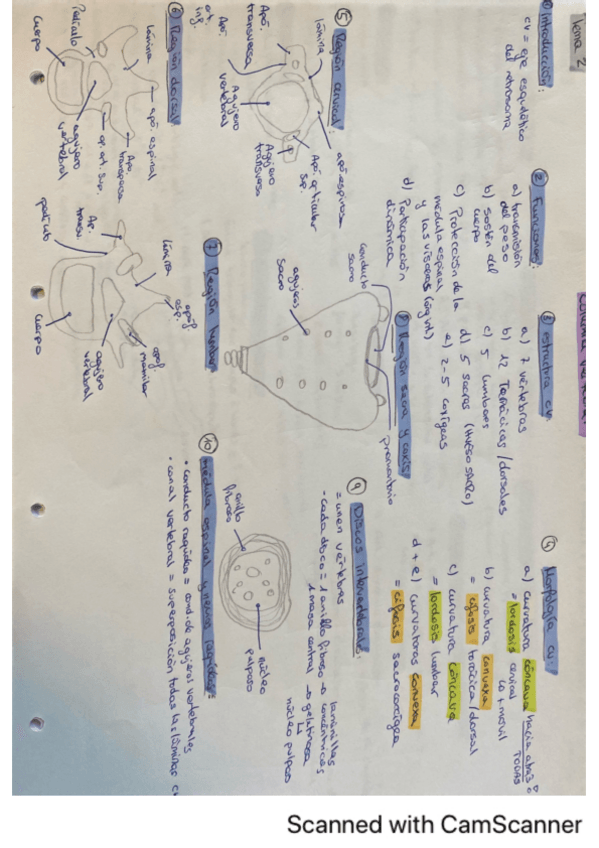 Tema 2
① Introducción:
CV = eje esquelético
del retrosoma
② Funciones:
a) transmisión
del peso
b) sostén del
cuerpo
c) Protección de la
médula espinal
y las vísceras
d) Participación
dinámica
③ estructura cv:
a) 7 vértebras
b) 12 Torácicas / dorsales
c) 5 lumbares
d) 5 sacras (HUESO SACRO)
e) 2-5 coxígeas
④ Morfología cv:
a) curvatura cóncava hacia atrás
= lordosis cervical
b) curvatura convexa
= cifosis torácica / dorsal
c) curvatura cóncava
= lordosis lumbar
d + e) curvaturas convexa
= cifosis sacrocoxígea
⑤ Región cervical:
lámina
apó espinosa
Apó.
transversa
Apó. articular
sup.
Apó.
art.
inf.
Agujero
vertebral
Agujero
transverso
⑥ Región dorsal
lámina
apó. espinal
Apó.
transversa
ap. art. sup.
Pedículo
agujero
vertebral
cuerpo
⑦ Región lumbar
lámina
apóf.
esp.
apóf.
mamilar
Ap.
transv.
pedículo
agujero
vertebral
cuerpo
⑧ Región sacra y coxis
conducto
sacro
promontorio
agujeros
sacro
⑨ Discos intervertebrales:
= unen vértebras
- cada disco = 1 anillo fibroso → laminillas
concéntricas
1 masa central → gelatinosa
núcleo pulposo
anillo
fibroso
núcleo
pulposo
⑩ Médula espinal y nervios raquídeos:
• conducto raquídeo = cond. de agujeros vertebrales
• canal vertebral = superposición todas las láminas cv
Scanned with CamScanner